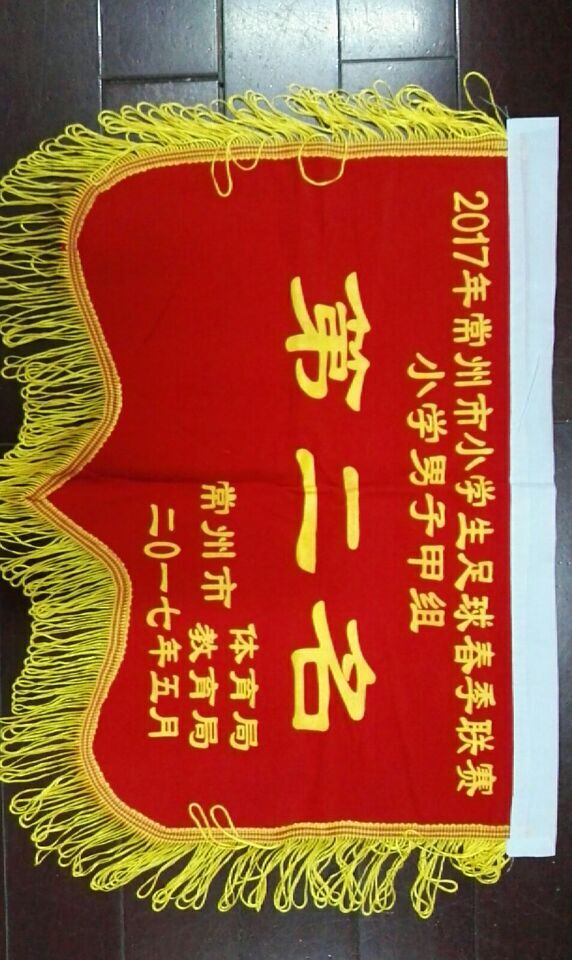 2017年常州市小学生足球春季联赛
小学男子甲组
第二名
常州市 体育局
教育局
二〇一七年五月